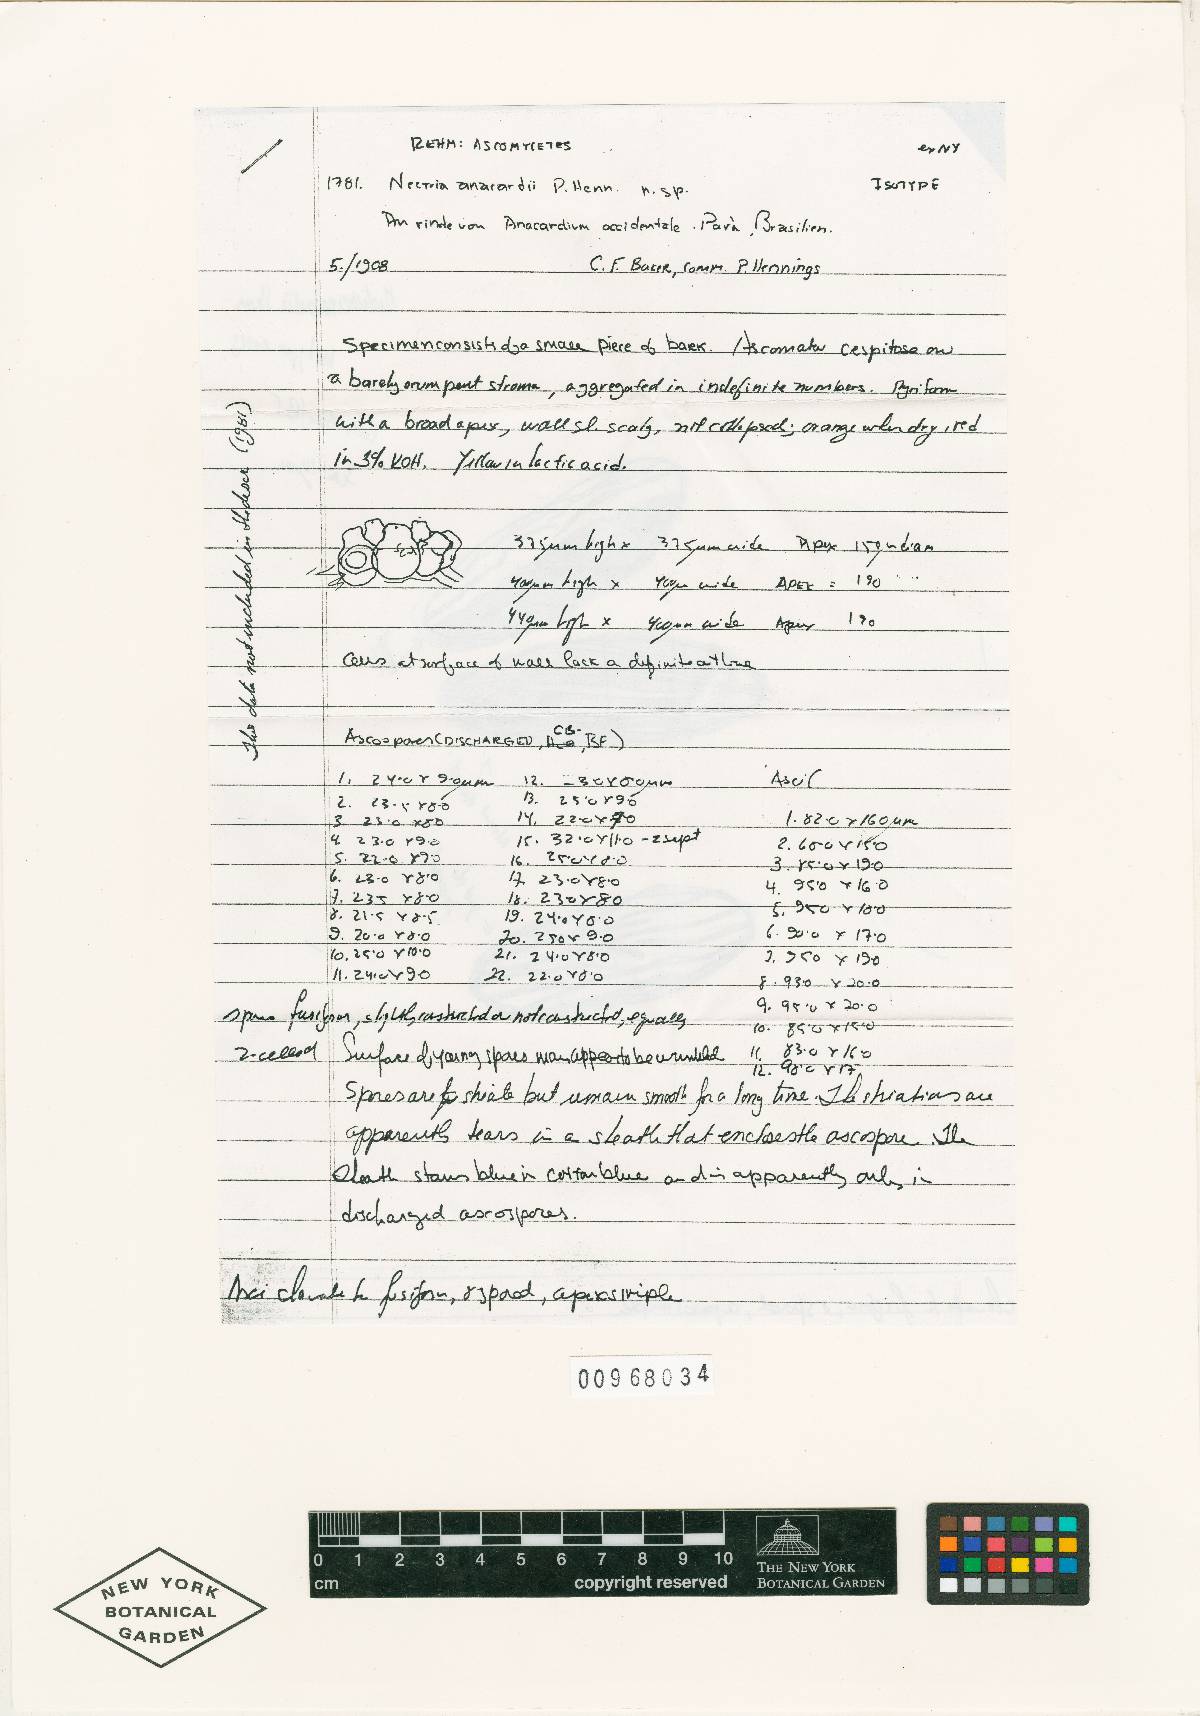 REHM: ASCOMYCETES
ex NY
1781. Nectria anacardii P. Henn. n. sp.
ISOTYPE
An rinde von Anacardium occidentale. Parà, Brasilien.
5./1908
C. F. Baker, comm. P. Hennings
Specimen consists of a small piece of bark. Ascomata cespitose on
a barely erumpent stroma, aggregated in indefinite numbers. Pyriform
with a broad apex, wall sl. scaly, not collapsed; orange when dry, red
in 3% KOH. Yellow in lactic acid.
This data not included in the descr (1981)
375µm high x 375µm wide Apex 150µ diam
400µm high x 400µm wide APEX = 190 " "
440µm high x 400µm wide Apex 190
Cells at surface of wall lack a definite outline
CB-
Ascospores (DISCHARGED, , BF)
1. 24.0 x 9.0µm
2. 23.5 x 8.0
3. 23.0 x 8.0
4. 23.0 x 9.0
5. 22.0 x 9.0
6. 23.0 x 8.0
7. 23.5 x 8.0
8. 21.5 x 8.5
9. 20.0 x 8.0
10. 25.0 x 10.0
11. 24.0 x 9.0
12. µm
13. 25.0 x 9.0
14. 22.0 x
15. 32.0 x 11.0 - 2 sept
16. 25.0 x 8.0
17. 23.0 x 8.0
18. 23.0 x 8.0
19. 24.0 x 8.0
20. 25.0 x 9.0
21. 24.0 x 8.0
22. 22.0 x 8.0
Asci
1. 82.0 x 16.0µm
2. x 15.0
3. 85.0 x 19.0
4. 95.0 x 16.0
5. 95.0 x 18.0
6. 90.0 x 17.0
7. 95.0 x 19.0
8. 93.0 x 20.0
9. 95.0 x 20.0
10. 85.0 x 15.0
11. 83.0 x 16.0
12. 98.0 x 17.
spores fusiform, slightly constricted or not constricted, equally
2-celled Surface of young spores may appear to be wrinkled
Spores are striate but remain smooth for a long time. The striations are
apparently tears in a sheath that encloses the ascospore. The
sheath stains blue in cotton blue and is apparently only in
discharged ascospores.
Asci clavate to fusiform, 8 spored, apex simple
00968034
0 1 2 3 4 5 6 7 8 9 10
cm
copyright reserved
THE NEW YORK
BOTANICAL GARDEN
NEW YORK
BOTANICAL
GARDEN